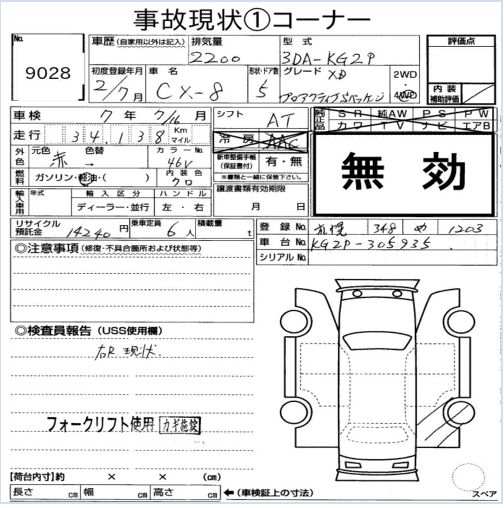 事故現状①コーナー
No. 9028
車歴 (自家用以外は記入) 排気量 2200 型式 3DA-KG2P
評価点
初度登録年月 2/7月 車名 CX-8 形状・ドア数 5 グレード XD プロアクティブSパッケージ 2WD 4WD
内装補助評価
車検 7年 7/16月
シフト AT
純正品 SR 純AW PS PW カワ TV ナビ エアB
走行 34,138 Km マイル
冷房 AAC
外色 元色 赤 色替 → カラーNo. 46V
新車整備手帳(保証書付) 有・無 ※書類と一緒に保管下さい。
無効
燃料 ガソリン・軽油・( ) 内装色 クロ
輸入車用 年式 輸入区分 ディーラー・並行 ハンドル 左・右
譲渡書類有効期限 月 日
リサイクル預託金 14240円 乗車定員 6人 積載量 t
登録No. 札幌 348 め 1203
車台No. KG2P-305935
シリアルNo.
◎注意事項 (修復・不具合箇所および状態等)
◎検査員報告 (USS使用欄)
右R 現状
フォークリフト使用 カギ施錠
【荷台内寸】約 × × (cm)
長さ cm 幅 cm 高さ cm ←(車検証上の寸法)
スペア